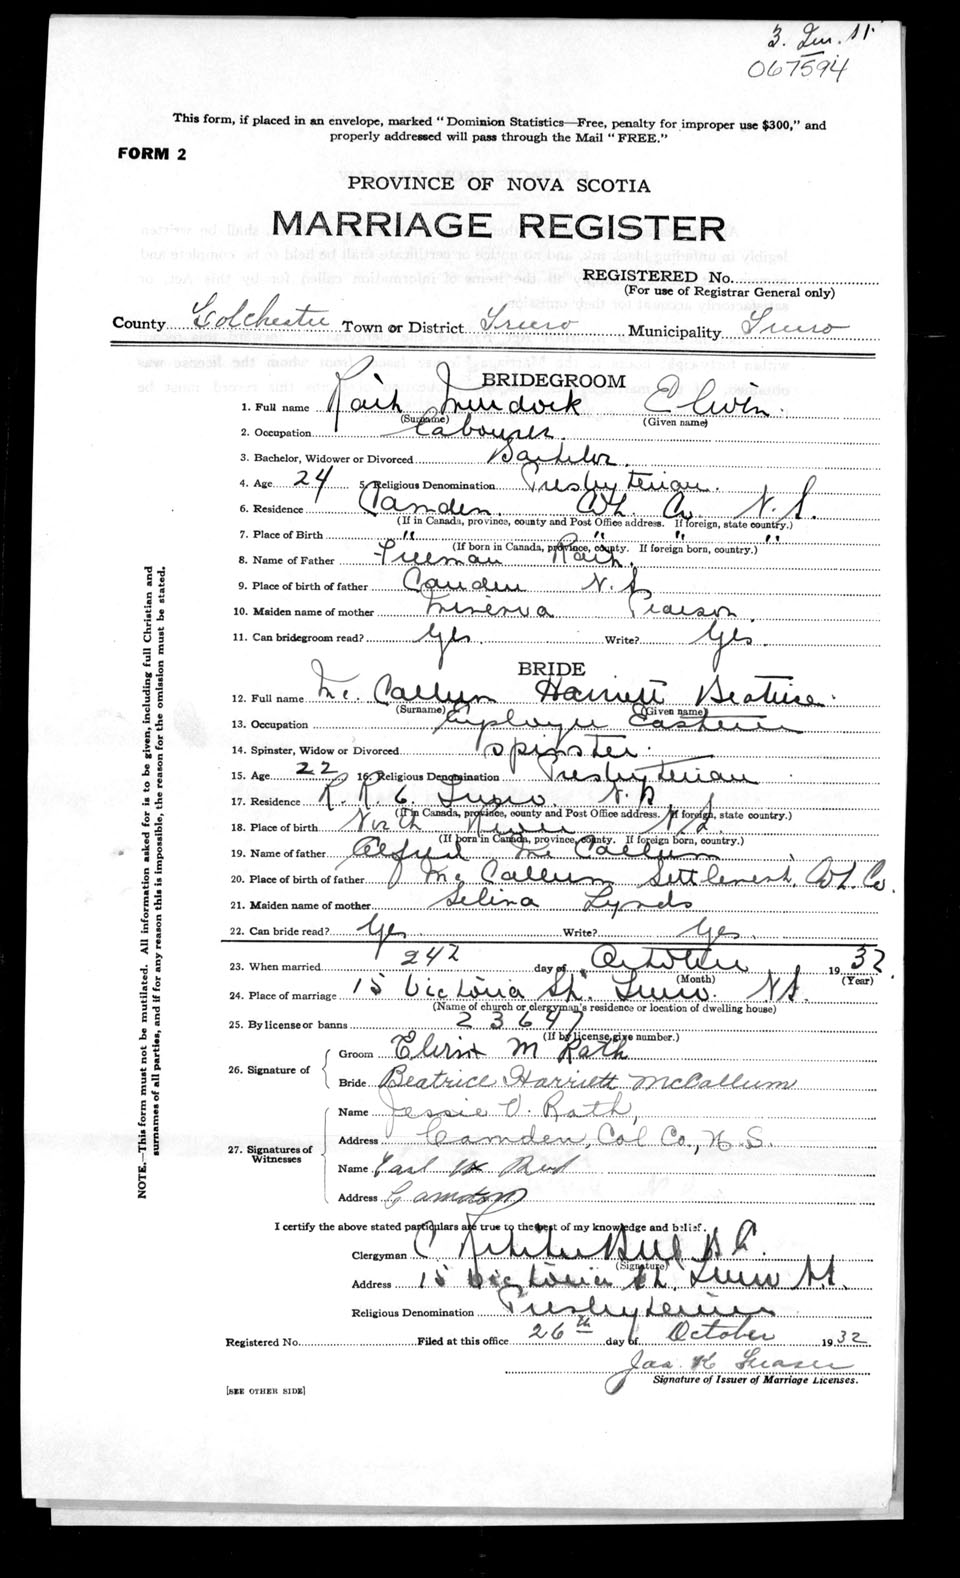 3.
067594
This form, if placed in an envelope, marked "Dominion Statistics—Free, penalty for improper use $300," and
properly addressed will pass through the Mail "FREE."
FORM 2
PROVINCE OF NOVA SCOTIA
MARRIAGE REGISTER
REGISTERED No.
(For use of Registrar General only)
County Colchester Town or District Truro Municipality Truro
BRIDEGROOM
1. Full name Rath Murdock Elwin
(Surname) (Given name)
2. Occupation Labourer
3. Bachelor, Widower or Divorced Bachelor
4. Age 24 5. Religious Denomination Presbyterian.
6. Residence Camden. Col. Co. N. S.
(If in Canada, province, county and Post Office address. If foreign, state country.)
7. Place of Birth " " " "
(If born in Canada, province, county. If foreign born, country.)
8. Name of Father Freeman Rath.
9. Place of birth of father Camden N. S
10. Maiden name of mother Minerva Pearson.
11. Can bridegroom read? Yes. Write? Yes.
BRIDE
12. Full name Mc Callum Harriett Beatrice.
(Surname) (Given name)
13. Occupation Employee Eastern
14. Spinster, Widow or Divorced Spinster.
15. Age 22 16. Religious Denomination Presbyterian
17. Residence R. R. 6. Truro. N. S
(If in Canada, province, county and Post Office address. If foreign, state country.)
18. Place of birth North River N.S.
(If born in Canada, province, county. If foreign born, country.)
19. Name of father Alfred Mc Callum
20. Place of birth of father Mc Callum Settlement, Col. Co.
21. Maiden name of mother Selina Lynds
22. Can bride read? Yes. Write? Yes.
23. When married 24 day of October 1932.
(Month) (Year)
24. Place of marriage 15 Victoria St. Truro. N.S.
(Name of church or clergyman's residence or location of dwelling house)
25. By license or banns 23647
(If by license, give number.)
26. Signature of
Groom Elwin M Rath
Bride Beatrice Harriett McCallum
27. Signatures of Witnesses
Name Jessie V. Rath,
Address Camden, Col Co., N.S.
Name Earl
Address Camden
I certify the above stated particulars are true to the best of my knowledge and belief.
Clergyman C
(Signature)
Address 15 Victoria St. Truro N.S.
Religious Denomination Presbyterian
Registered No. Filed at this office 26th day of October 1932
Jas K Fraser
Signature of Issuer of Marriage Licenses.
[SEE OTHER SIDE]
NOTE.—This form must not be mutilated. All information asked for is to be given, including full Christian and
surnames of all parties, and if for any reason this is impossible, the reason for the omission must be stated.